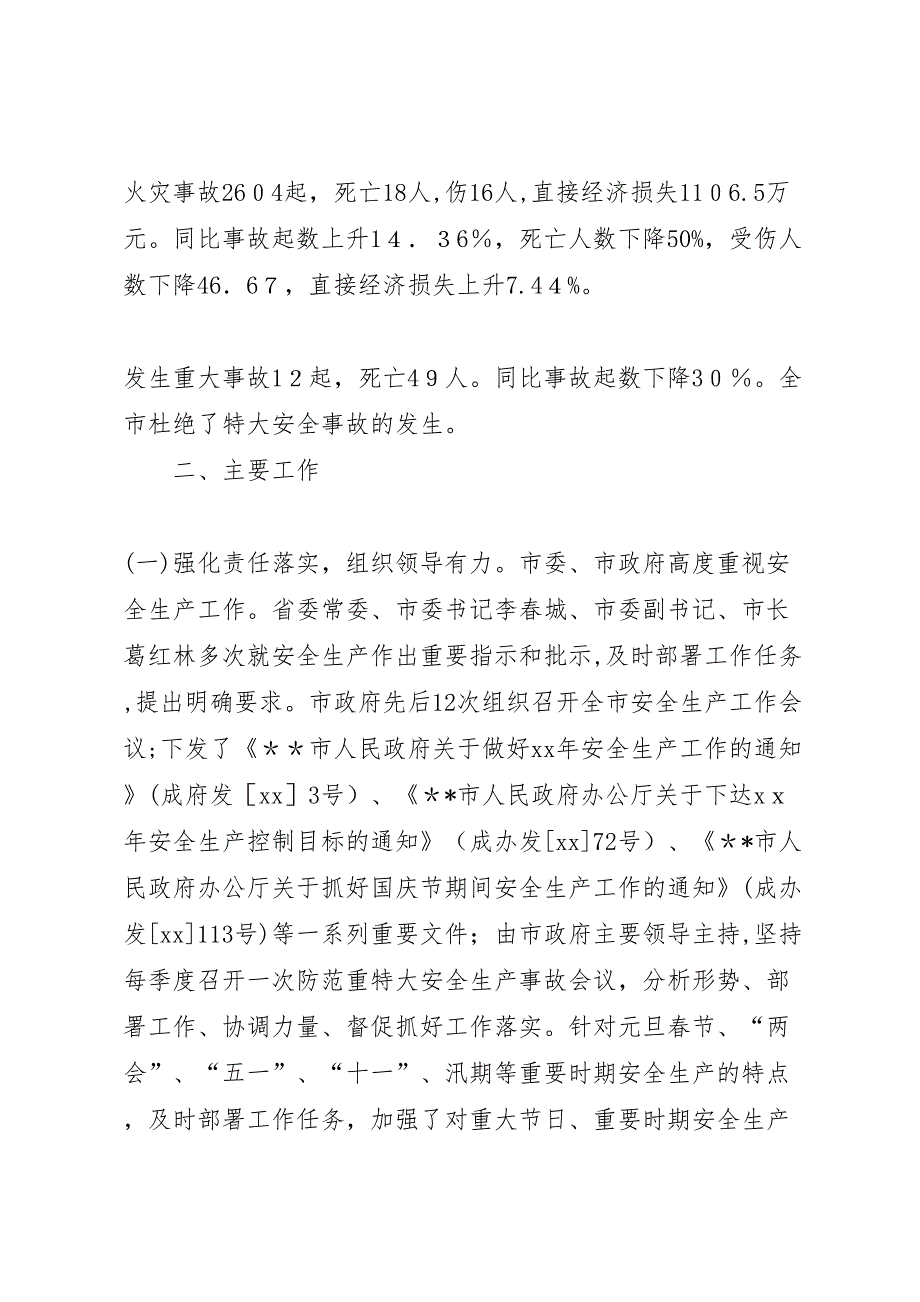 火灾事故26０4起，死亡18人,伤16人,直接经济损失11０6.5万
元。同比事故起数上升1４．３6%，死亡人数下降50%，受伤人
数下降46．6７，直接经济损失上升7.4４%。
发生重大事故1２起，死亡4９人。同比事故起数下降3０％。全
市杜绝了特大安全事故的发生。
二、主要工作
(一)强化责任落实，组织领导有力。市委、市政府高度重视安
全生产工作。省委常委、市委书记李春城、市委副书记、市长
葛红林多次就安全生产作出重要指示和批示,及时部署工作任务
,提出明确要求。市政府先后12次组织召开全市安全生产工作会
议;下发了《＊＊市人民政府关于做好xx年安全生产工作的通知
》(成府发［xx］3号）、《＊*市人民政府办公厅关于下达xｘ
年安全生产控制目标的通知》（成办发[xx]72号）、《＊*市人
民政府办公厅关于抓好国庆节期间安全生产工作的通知》(成办
发[xx]113号)等一系列重要文件；由市政府主要领导主持,坚持
每季度召开一次防范重特大安全生产事故会议，分析形势、部
署工作、协调力量、督促抓好工作落实。针对元旦春节、“两
会”、“五一”、“十一”、汛期等重要时期安全生产的特点
，及时部署工作任务，加强了对重大节日、重要时期安全生产